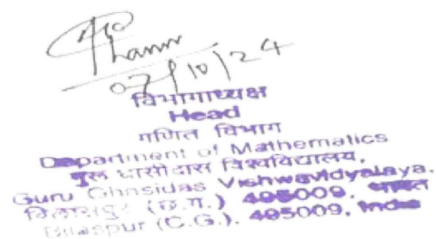 07/10/24
विभागाध्यक्ष
Head
गणित विभाग
Department of Mathematics
गुरु घासीदास विश्वविद्यालय,
Guru Ghasidas Vishwavidyalaya,
बिलासपुर (छ.ग.) 495009, भारत
Bilaspur (C.G.), 495009, India